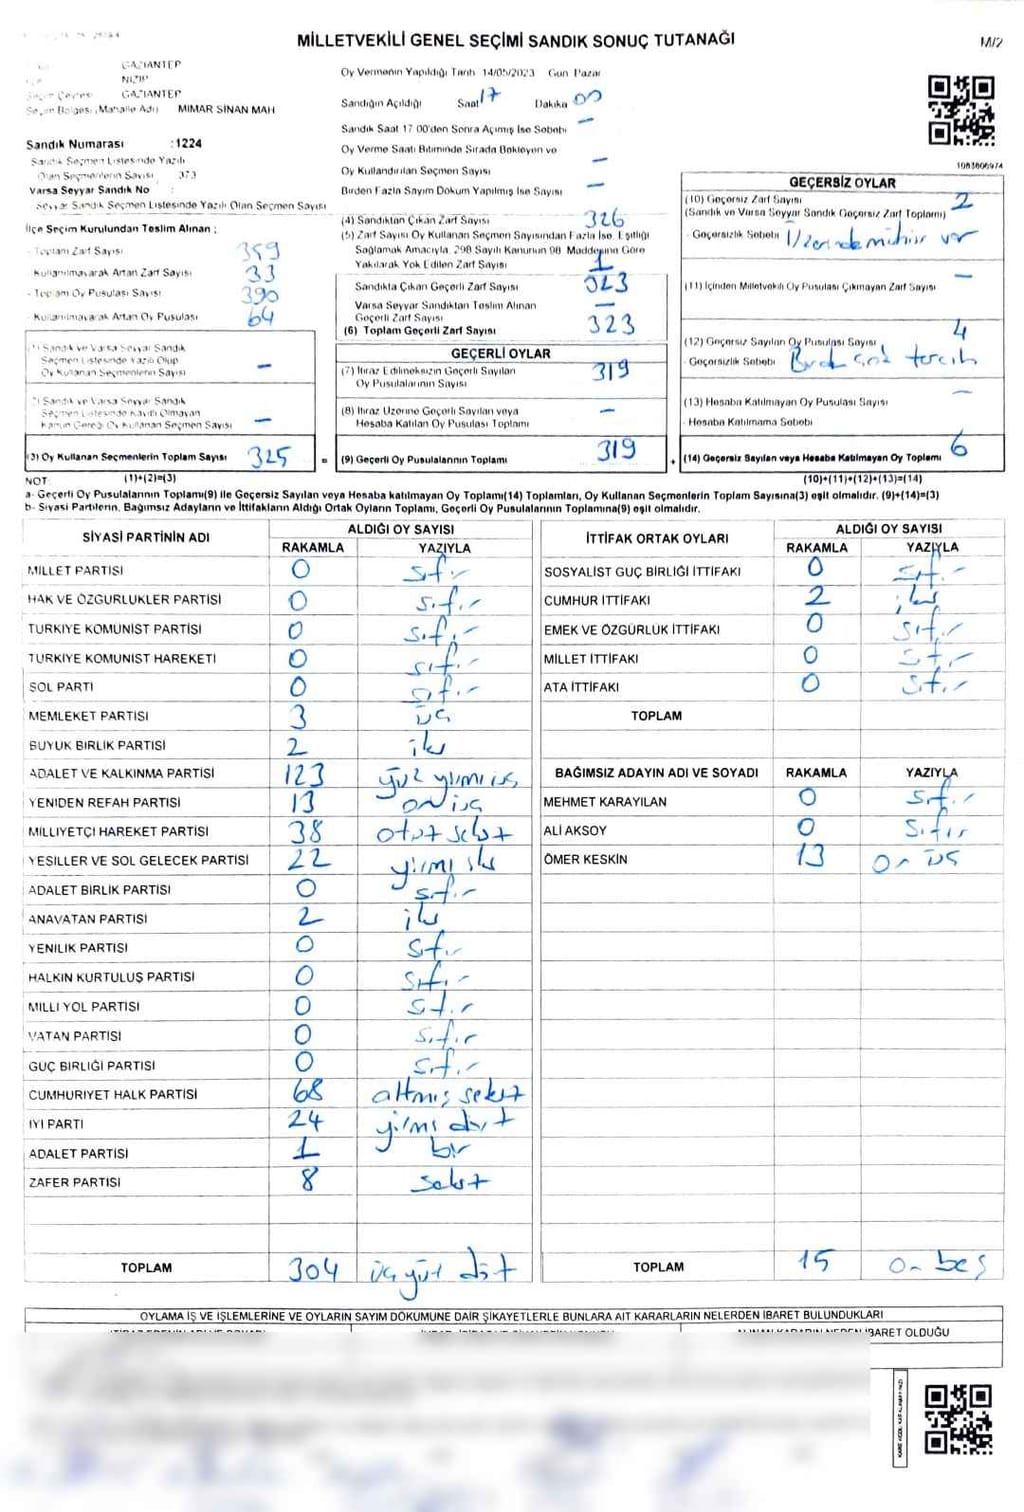 MİLLETVEKİLİ GENEL SEÇİMİ SANDIK SONUÇ TUTANAĞI
M/2
GAZİANTEP
NİZİP
Seçim Çevresi GAZİANTEP
Seçim Bölgesi (Mahalle Adı) MİMAR SİNAN MAH
Sandık Numarası :1224
Sandık Seçmen Listesinde Yazılı
Olan Seçmenlerin Sayısı 373
Varsa Seyyar Sandık No :
Seyyar Sandık Seçmen Listesinde Yazılı Olan Seçmen Sayısı
İlçe Seçim Kurulundan Teslim Alınan ;
- Toplam Zarf Sayısı 359
- Kullanılmayarak Artan Zarf Sayısı 33
- Toplam Oy Pusulası Sayısı 390
- Kullanılmayarak Artan Oy Pusulası 64
(1) Sandık ve Varsa Seyyar Sandık
Seçmen Listesinde Yazılı Olup
Oy Kullanan Seçmenlerin Sayısı –
(2) Sandık ve Varsa Seyyar Sandık
Seçmen Listesinde Kayıtlı Olmayan
Kanun Gereği Oy Kullanan Seçmen Sayısı –
(3) Oy Kullanan Seçmenlerin Toplam Sayısı 325
Oy Vermenin Yapıldığı Tarih 14/05/2023 Gün Pazar
Sandığın Açıldığı Saat 17 Dakika 00
Sandık Saat 17 00'den Sonra Açılmış İse Sebebi –
Oy Verme Saati Bitiminde Sırada Bekleyen ve
Oy Kullandırılan Seçmen Sayısı –
Birden Fazla Sayım Döküm Yapılmış İse Sayısı –
(4) Sandıktan Çıkan Zarf Sayısı 326
(5) Zarf Sayısı Oy Kullanan Seçmen Sayısından Fazla İse, Eşitliği
Sağlamak Amacıyla, 298 Sayılı Kanunun 98 Maddesine Göre
Yakılarak Yok Edilen Zarf Sayısı 1
Sandıkta Çıkan Geçerli Zarf Sayısı 323
Varsa Seyyar Sandıktan Teslim Alınan
Geçerli Zarf Sayısı –
(6) Toplam Geçerli Zarf Sayısı 323
GEÇERLİ OYLAR
(7) İtiraz Edilmeksizin Geçerli Sayılan
Oy Pusulalarının Sayısı 319
(8) İtiraz Üzerine Geçerli Sayılan veya
Hesaba Katılan Oy Pusulası Toplamı –
= (9) Geçerli Oy Pusulalarının Toplamı 319
1083606974
GEÇERSİZ OYLAR
(10) Geçersiz Zarf Sayısı 2
(Sandık ve Varsa Seyyar Sandık Geçersiz Zarf Toplamı)
- Geçersizlik Sebebi Üzerinde mühür var
(11) İçinden Milletvekili Oy Pusulası Çıkmayan Zarf Sayısı –
(12) Geçersiz Sayılan Oy Pusulası Sayısı 4
- Geçersizlik Sebebi tercih
(13) Hesaba Katılmayan Oy Pusulası Sayısı –
- Hesaba Katılmama Sebebi
+ (14) Geçersiz Sayılan veya Hesaba Katılmayan Oy Toplamı 6
NOT: (1)+(2)=(3) (10)+(11)+(12)+(13)=(14)
a- Geçerli Oy Pusulalarının Toplamı(9) ile Geçersiz Sayılan veya Hesaba katılmayan Oy Toplamı(14) Toplamları, Oy Kullanan Seçmenlerin Toplam Sayısına(3) eşit olmalıdır. (9)+(14)=(3)
b- Siyasi Partilerin, Bağımsız Adayların ve İttifakların Aldığı Ortak Oyların Toplamı, Geçerli Oy Pusulalarının Toplamına(9) eşit olmalıdır.
SİYASİ PARTİNİN ADI ALDIĞI OY SAYISI
RAKAMLA YAZIYLA
MİLLET PARTİSİ 0 sıfır
HAK VE ÖZGÜRLÜKLER PARTİSİ 0 sıfır
TÜRKİYE KOMÜNİST PARTİSİ 0 sıfır
TÜRKİYE KOMÜNİST HAREKETİ 0 sıfır
SOL PARTİ 0 sıfır
MEMLEKET PARTİSİ 3 üç
BÜYÜK BİRLİK PARTİSİ 2 iki
ADALET VE KALKINMA PARTİSİ 123 yüz yirmi üç
YENİDEN REFAH PARTİSİ 13 on üç
MİLLİYETÇİ HAREKET PARTİSİ 38 otuz sekiz
YEŞİLLER VE SOL GELECEK PARTİSİ 22 yirmi iki
ADALET BİRLİK PARTİSİ 0 sıfır
ANAVATAN PARTİSİ 2 iki
YENİLİK PARTİSİ 0 sıfır
HALKIN KURTULUŞ PARTİSİ 0 sıfır
MİLLİ YOL PARTİSİ 0 sıfır
VATAN PARTİSİ 0 sıfır
GÜÇ BİRLİĞİ PARTİSİ 0 sıfır
CUMHURİYET HALK PARTİSİ 68 altmış sekiz
İYİ PARTİ 24 yirmi dört
ADALET PARTİSİ 1 bir
ZAFER PARTİSİ 8 sekiz
TOPLAM 304 üç yüz dört
İTTİFAK ORTAK OYLARI ALDIĞI OY SAYISI
RAKAMLA YAZIYLA
SOSYALİST GÜÇ BİRLİĞİ İTTİFAKI 0 sıfır
CUMHUR İTTİFAKI 2 iki
EMEK VE ÖZGÜRLÜK İTTİFAKI 0 sıfır
MİLLET İTTİFAKI 0 sıfır
ATA İTTİFAKI 0 sıfır
TOPLAM
BAĞIMSIZ ADAYIN ADI VE SOYADI RAKAMLA YAZIYLA
MEHMET KARAYILAN 0 sıfır
ALİ AKSOY 0 sıfır
ÖMER KESKİN 13 on üç
TOPLAM 15 on beş
OYLAMA İŞ VE İŞLEMLERİNE VE OYLARIN SAYIM DÖKÜMÜNE DAİR ŞİKAYETLERLE BUNLARA AİT KARARLARIN NELERDEN İBARET BULUNDUKLARI
İBARET OLDUĞU